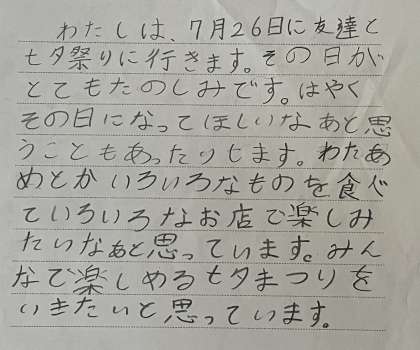 わたしは、7月26日に友達と
七夕祭りに行きます。その日が
とてもたのしみです。はやく
その日になってほしいなあと思
うこともあったりします。わたあ
めとかいろいろなものを食べ
ていろいろなお店で楽しみ
たいなぁと思っています。みん
なで楽しめる七夕まつりを
いきたいと思っています。